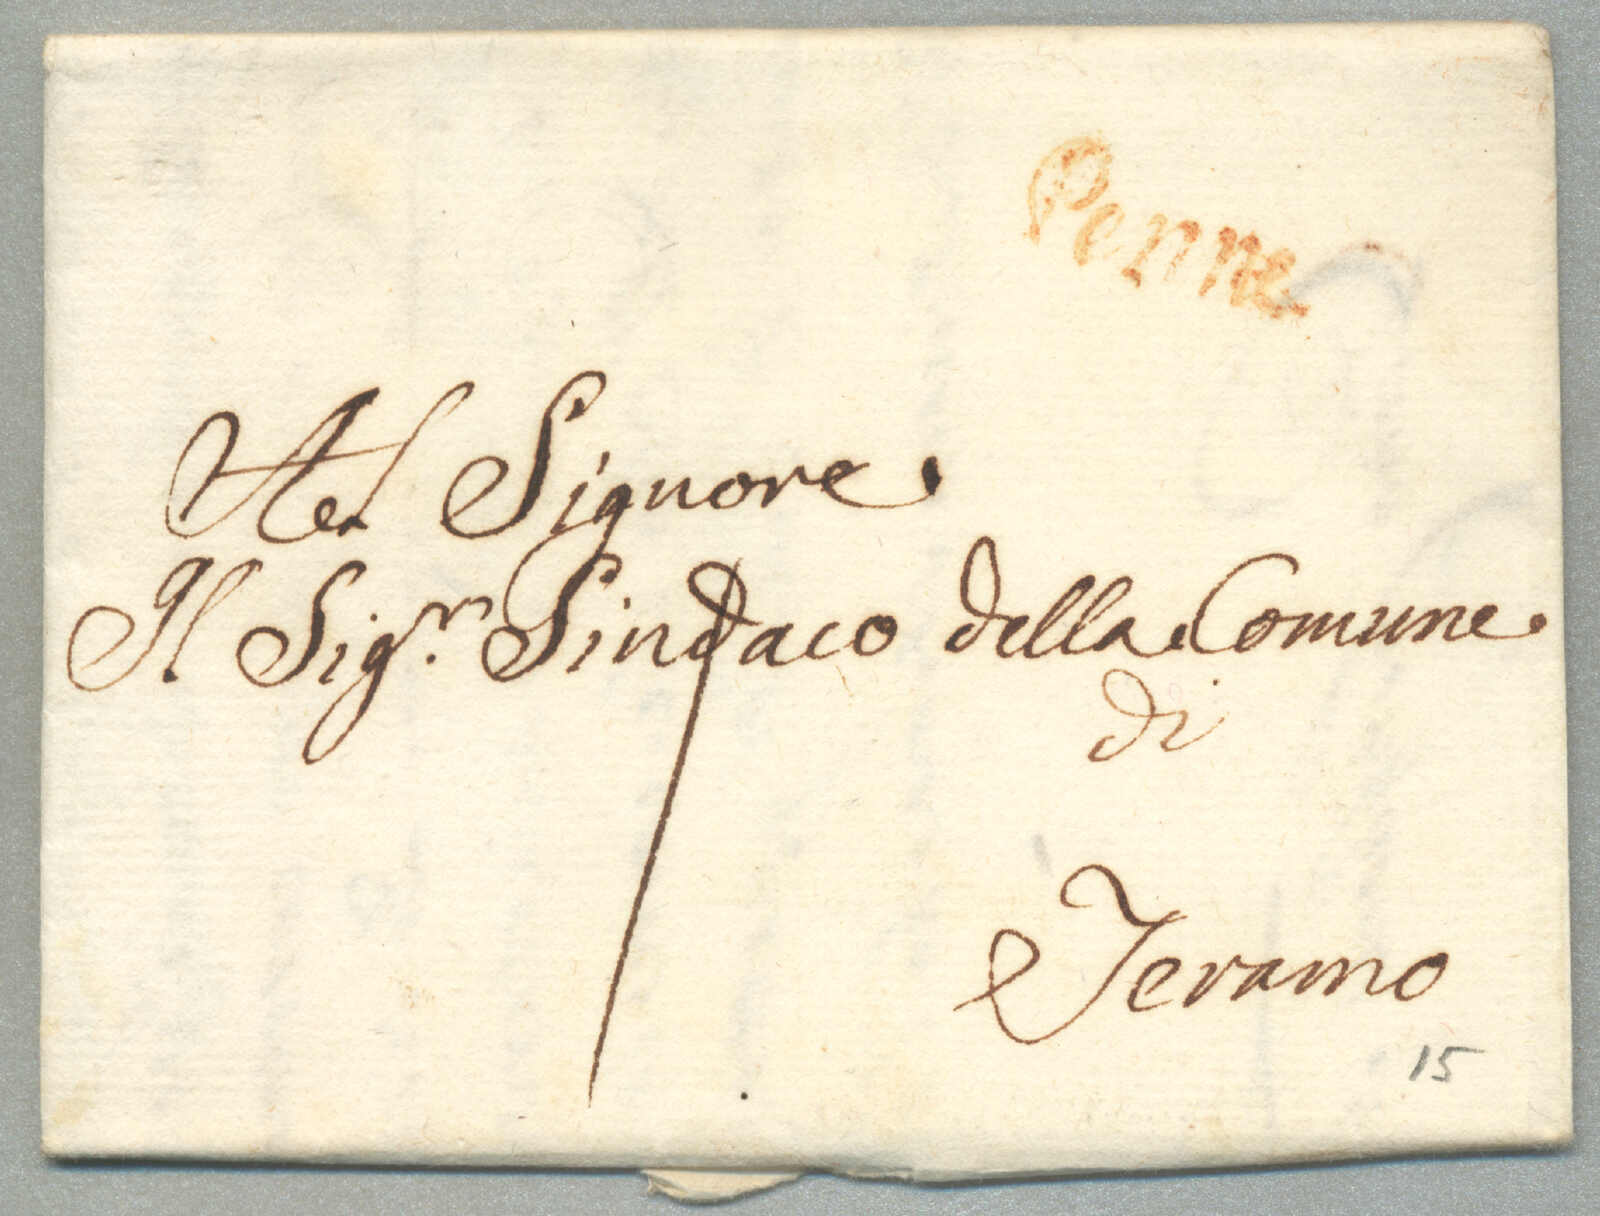 Penne
Al Signore
Il Sig.r Sindaco della Comune
di
Teramo
15